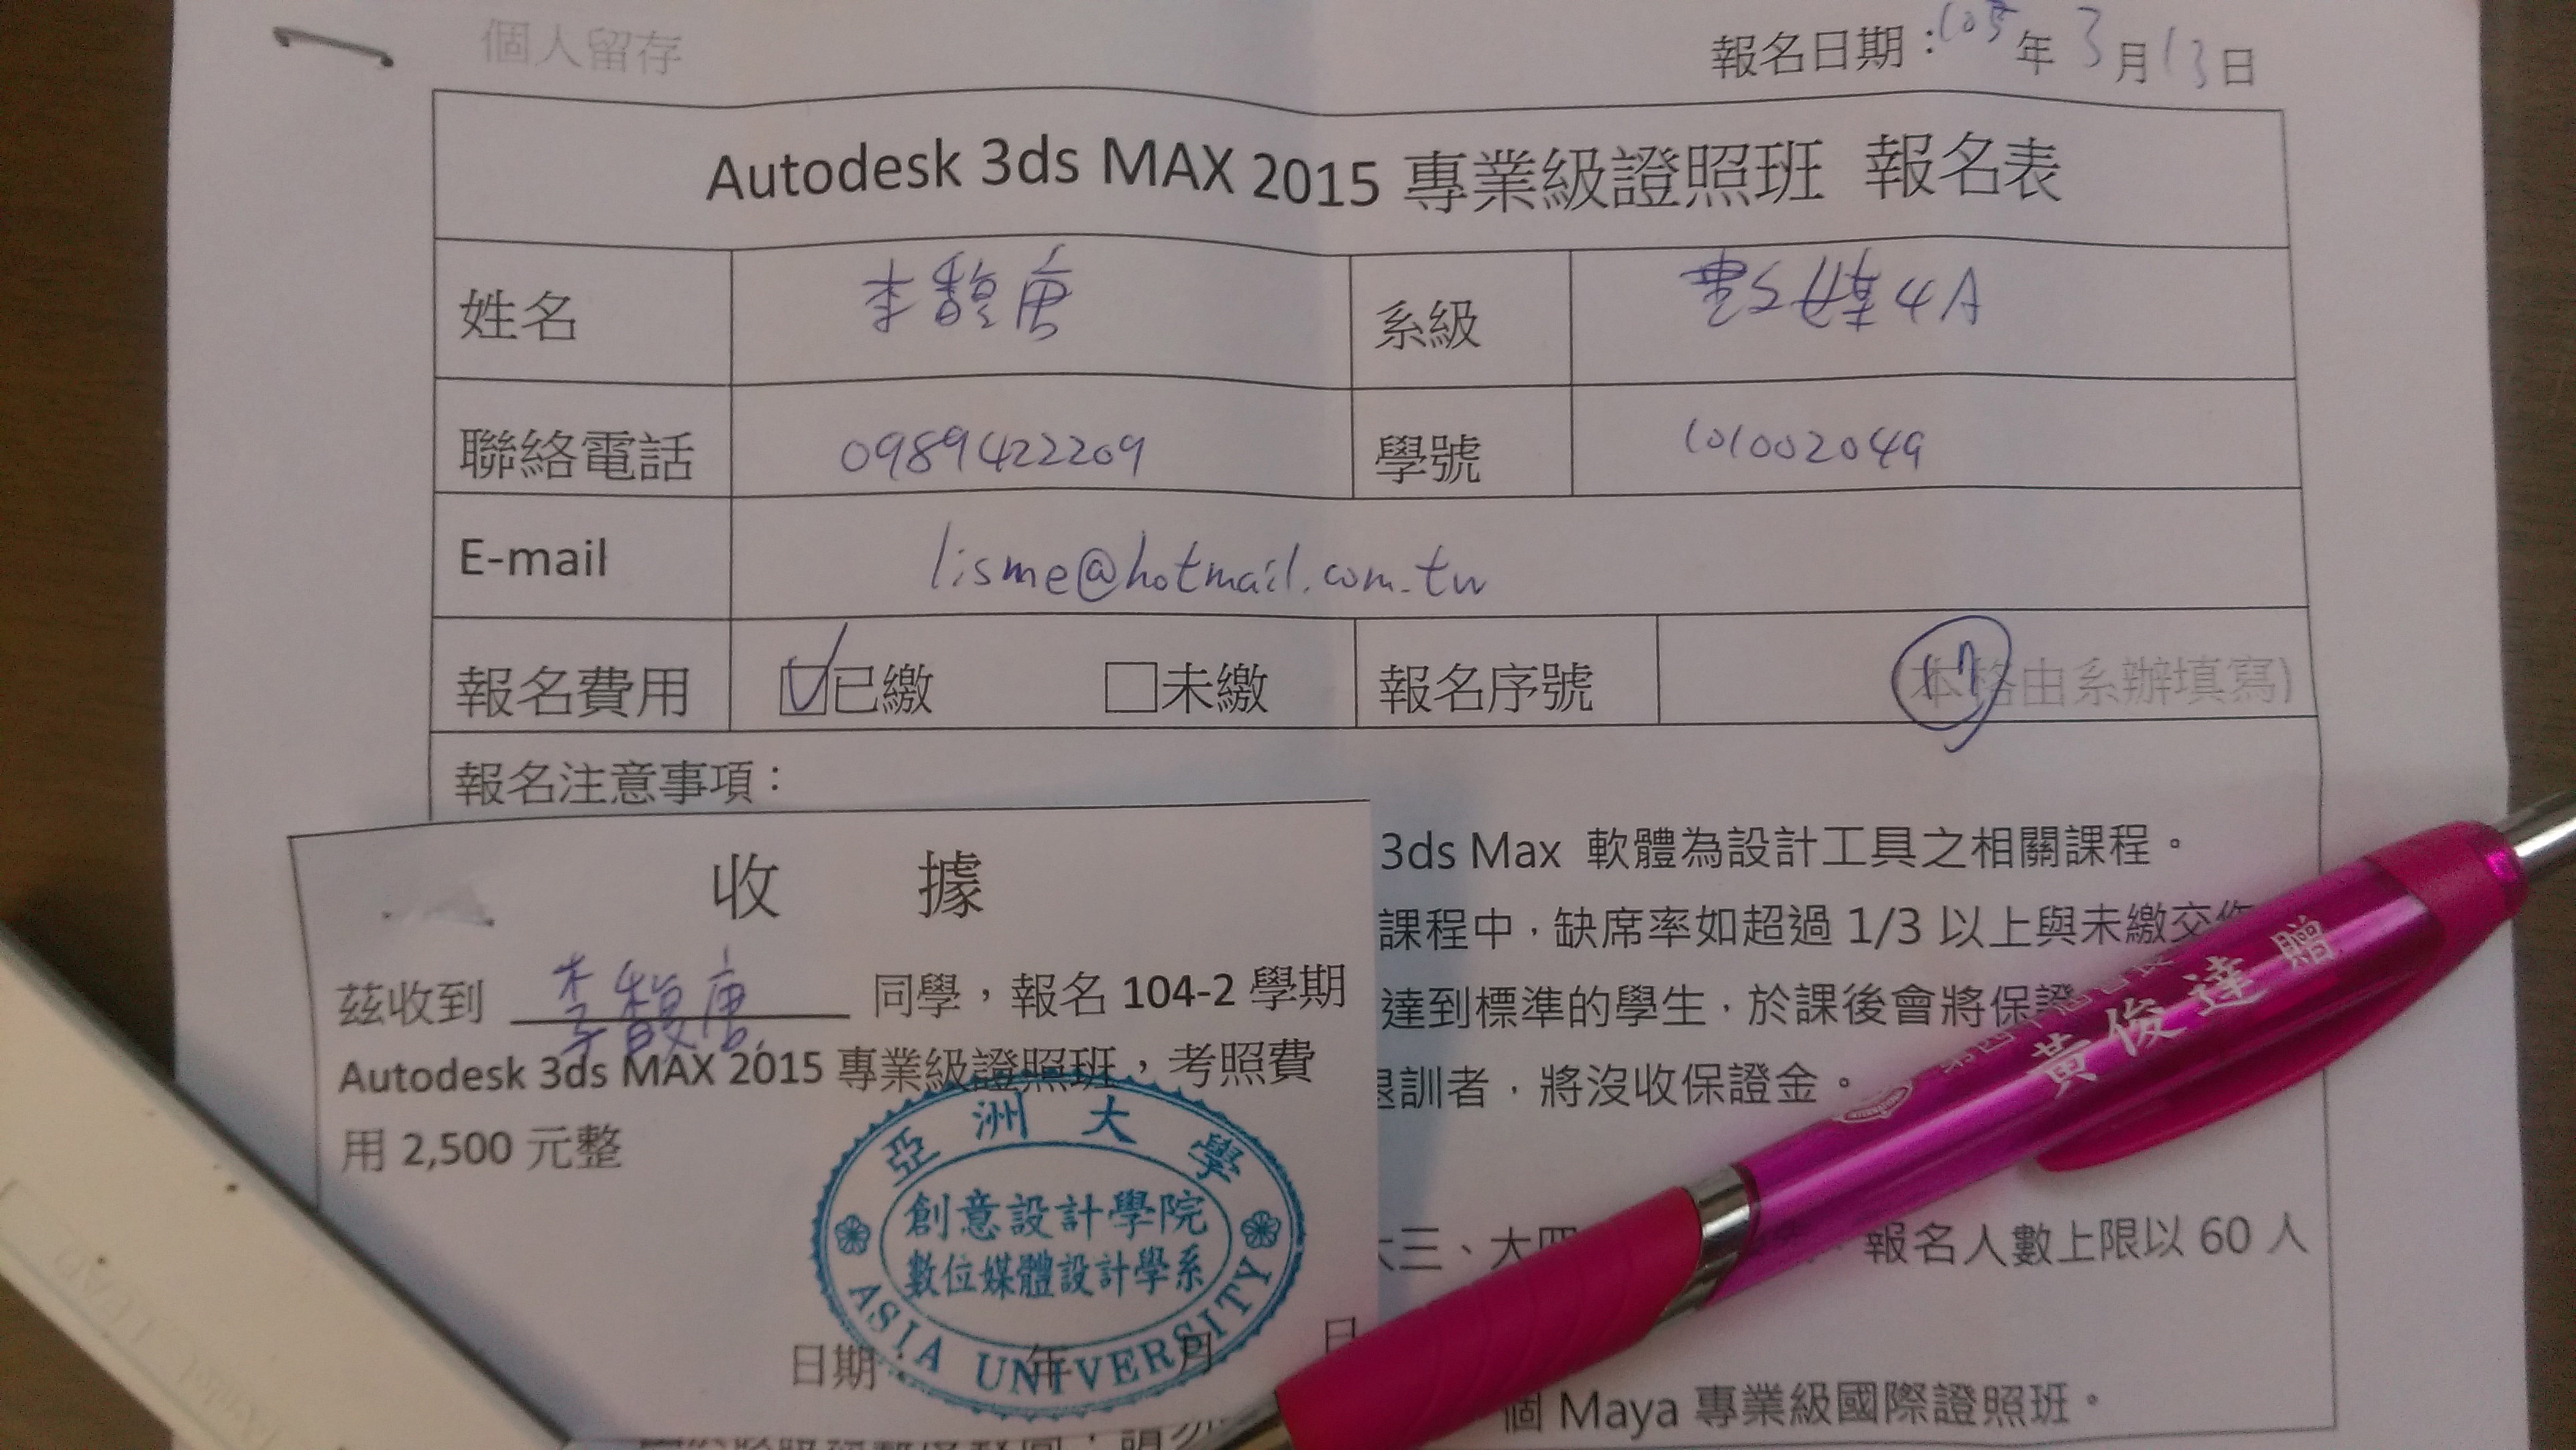 個人留存
報名日期：105年3月13日
Autodesk 3ds MAX 2015 專業級證照班 報名表
姓名 李馥唐 系級 數媒4A
聯絡電話 0989422209 學號 101002049
E-mail lisme@hotmail.com.tw
報名費用 ☑已繳 □未繳 報名序號 (本格由系辦填寫)
報名注意事項：
3ds Max 軟體為設計工具之相關課程。
課程中，缺席率如超過 1/3 以上與未繳交作
達到標準的學生，於課後會將保證
退訓者，將沒收保證金。
大三、大四 報名人數上限以 60 人
個 Maya 專業級國際證照班。
收 據
茲收到 李馥唐 同學，報名 104-2 學期
Autodesk 3ds MAX 2015 專業級證照班，考照費
用 2,500 元整
亞洲大學
創意設計學院
數位媒體設計學系
ASIA UNIVERSITY
日期： 年 月 日
黃俊達 贈